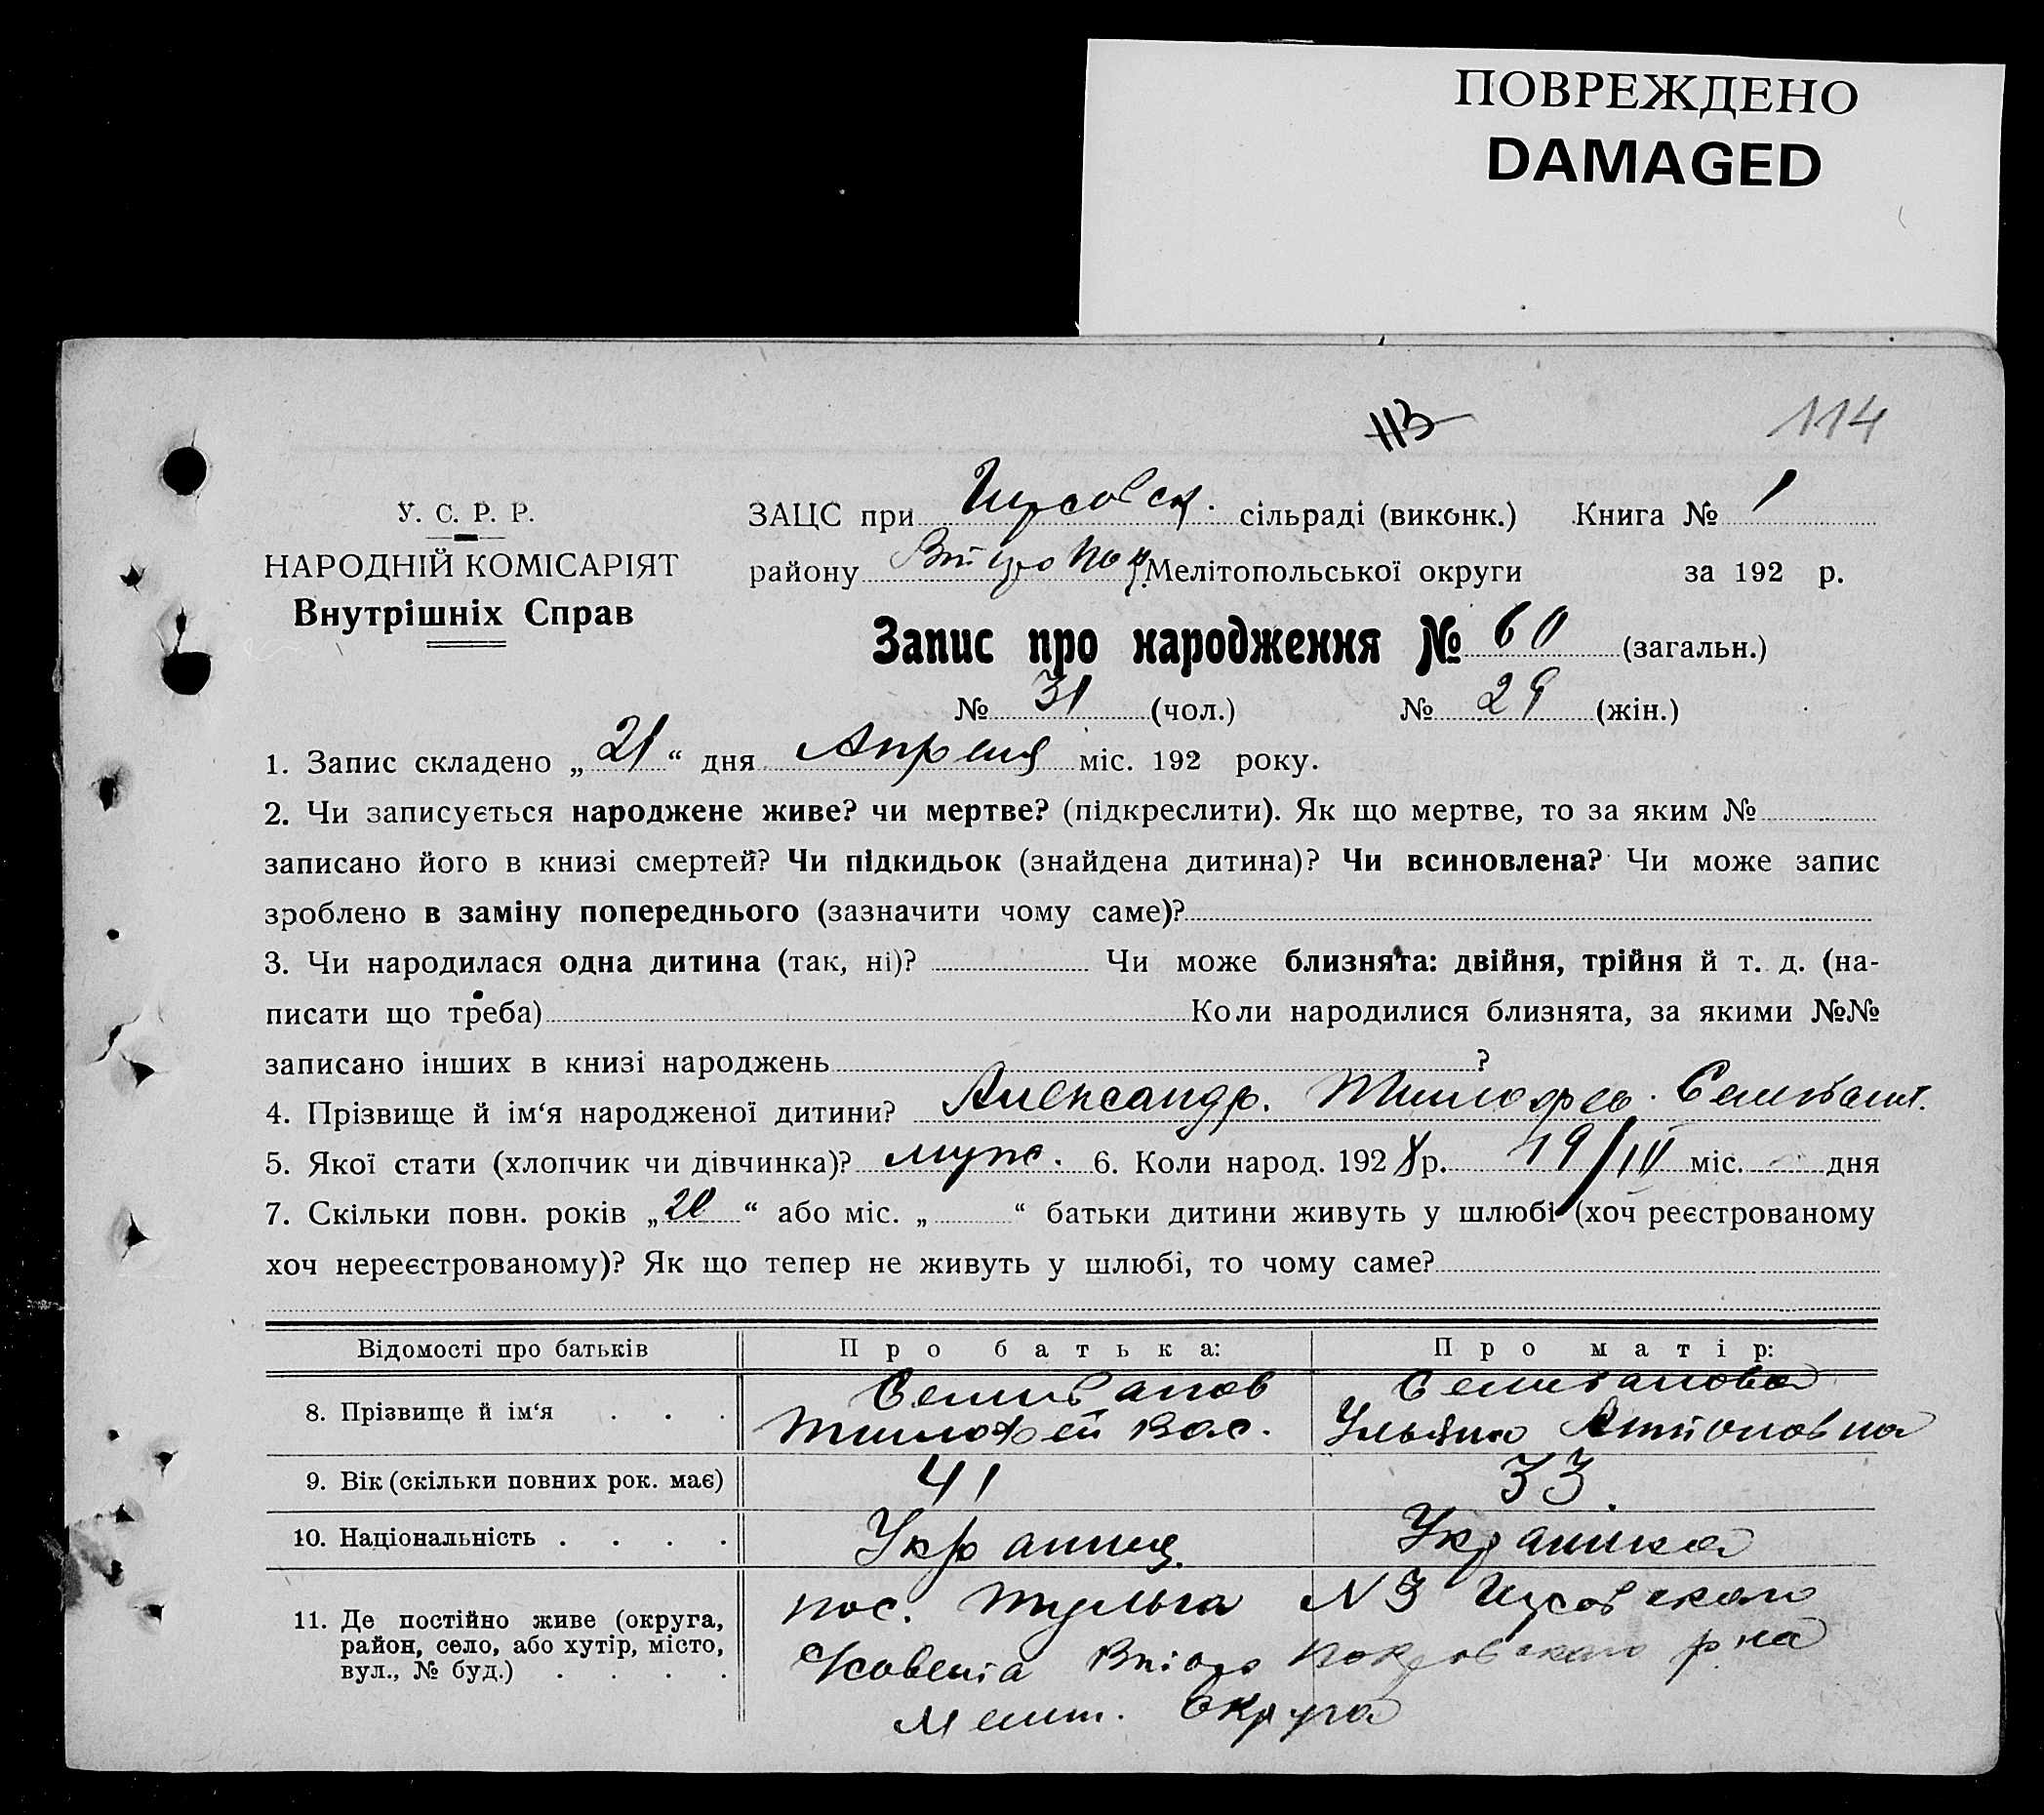 ПОВРЕЖДЕНО
DAMAGED
113
114
У. С. Р. Р.
НАРОДНІЙ КОМІСАРІЯТ
Внутрішніх Справ
ЗАЦС при сільраді (виконк.) Книга № 1
району Мелітопольської округи за 192 р.
Запис про народження № 60 (загальн.)
№ 31 (чол.) № 29 (жін.)
1. Запис складено „21“ дня Апреля міс. 192 року.
2. Чи записується народжене живе? чи мертве? (підкреслити). Як що мертве, то за яким №
записано його в книзі смертей? Чи підкидьок (знайдена дитина)? Чи всиновлена? Чи може запис
зроблено в заміну попереднього (зазначити чому саме)?
3. Чи народилася одна дитина (так, ні)? Чи може близнята: двійня, трійня й т. д. (на-
писати що треба) Коли народилися близнята, за якими №№
записано інших в книзі народжень ?
4. Прізвище й ім‘я народженої дитини? Александр. Тимофее. Селиван.
5. Якої стати (хлопчик чи дівчинка)? муж. 6. Коли народ. 1928 р. 19/III міс. дня
7. Скільки повн. років „20“ або міс. „ “ батьки дитини живуть у шлюбі (хоч реєстрованому
хоч нереєстрованому)? Як що тепер не живуть у шлюбі, то чому саме?
Відомості про батьків Про батька: Про матір:
8. Прізвище й ім‘я . . . Селиванов Тимофей Вас. Селиванова Ульяна Антоновна
9. Вік (скільки повних рок. має) 41 33.
10. Національність . . . . Украинец. Украинка
11. Де постійно живе (округа,
район, село, або хутір, місто,
вул., № буд.) . . . .
пос. Тульга N 3
р на
Мелит. Округа